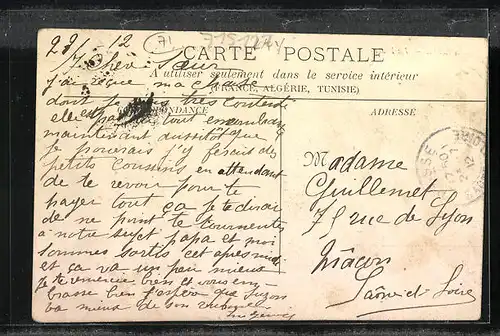 28/7 12
71
CARTE POSTALE
A utiliser seulement dans le service intérieur
(FRANCE, ALGÉRIE, TUNISIE)
CORRESPONDANCE
ADRESSE
Chère Sœur
j'ai reçue ma
dont je suis très contente
elle est tout
maintenant aussitôt que
je pourrais j'y ferais des
petits coussins en attendant
de te revoir pour te
payer tout ça je te dirai
de ne point te tourmenter
à notre sujet papa et moi
sommes sortis cet après midi
et ça va un peu mieux
je te remercie bien et vous em-
brasse bien j'espère que
va mieux de son
Madame
Guillemet
75 rue de Lyon
Mâcon
Saône et Loire